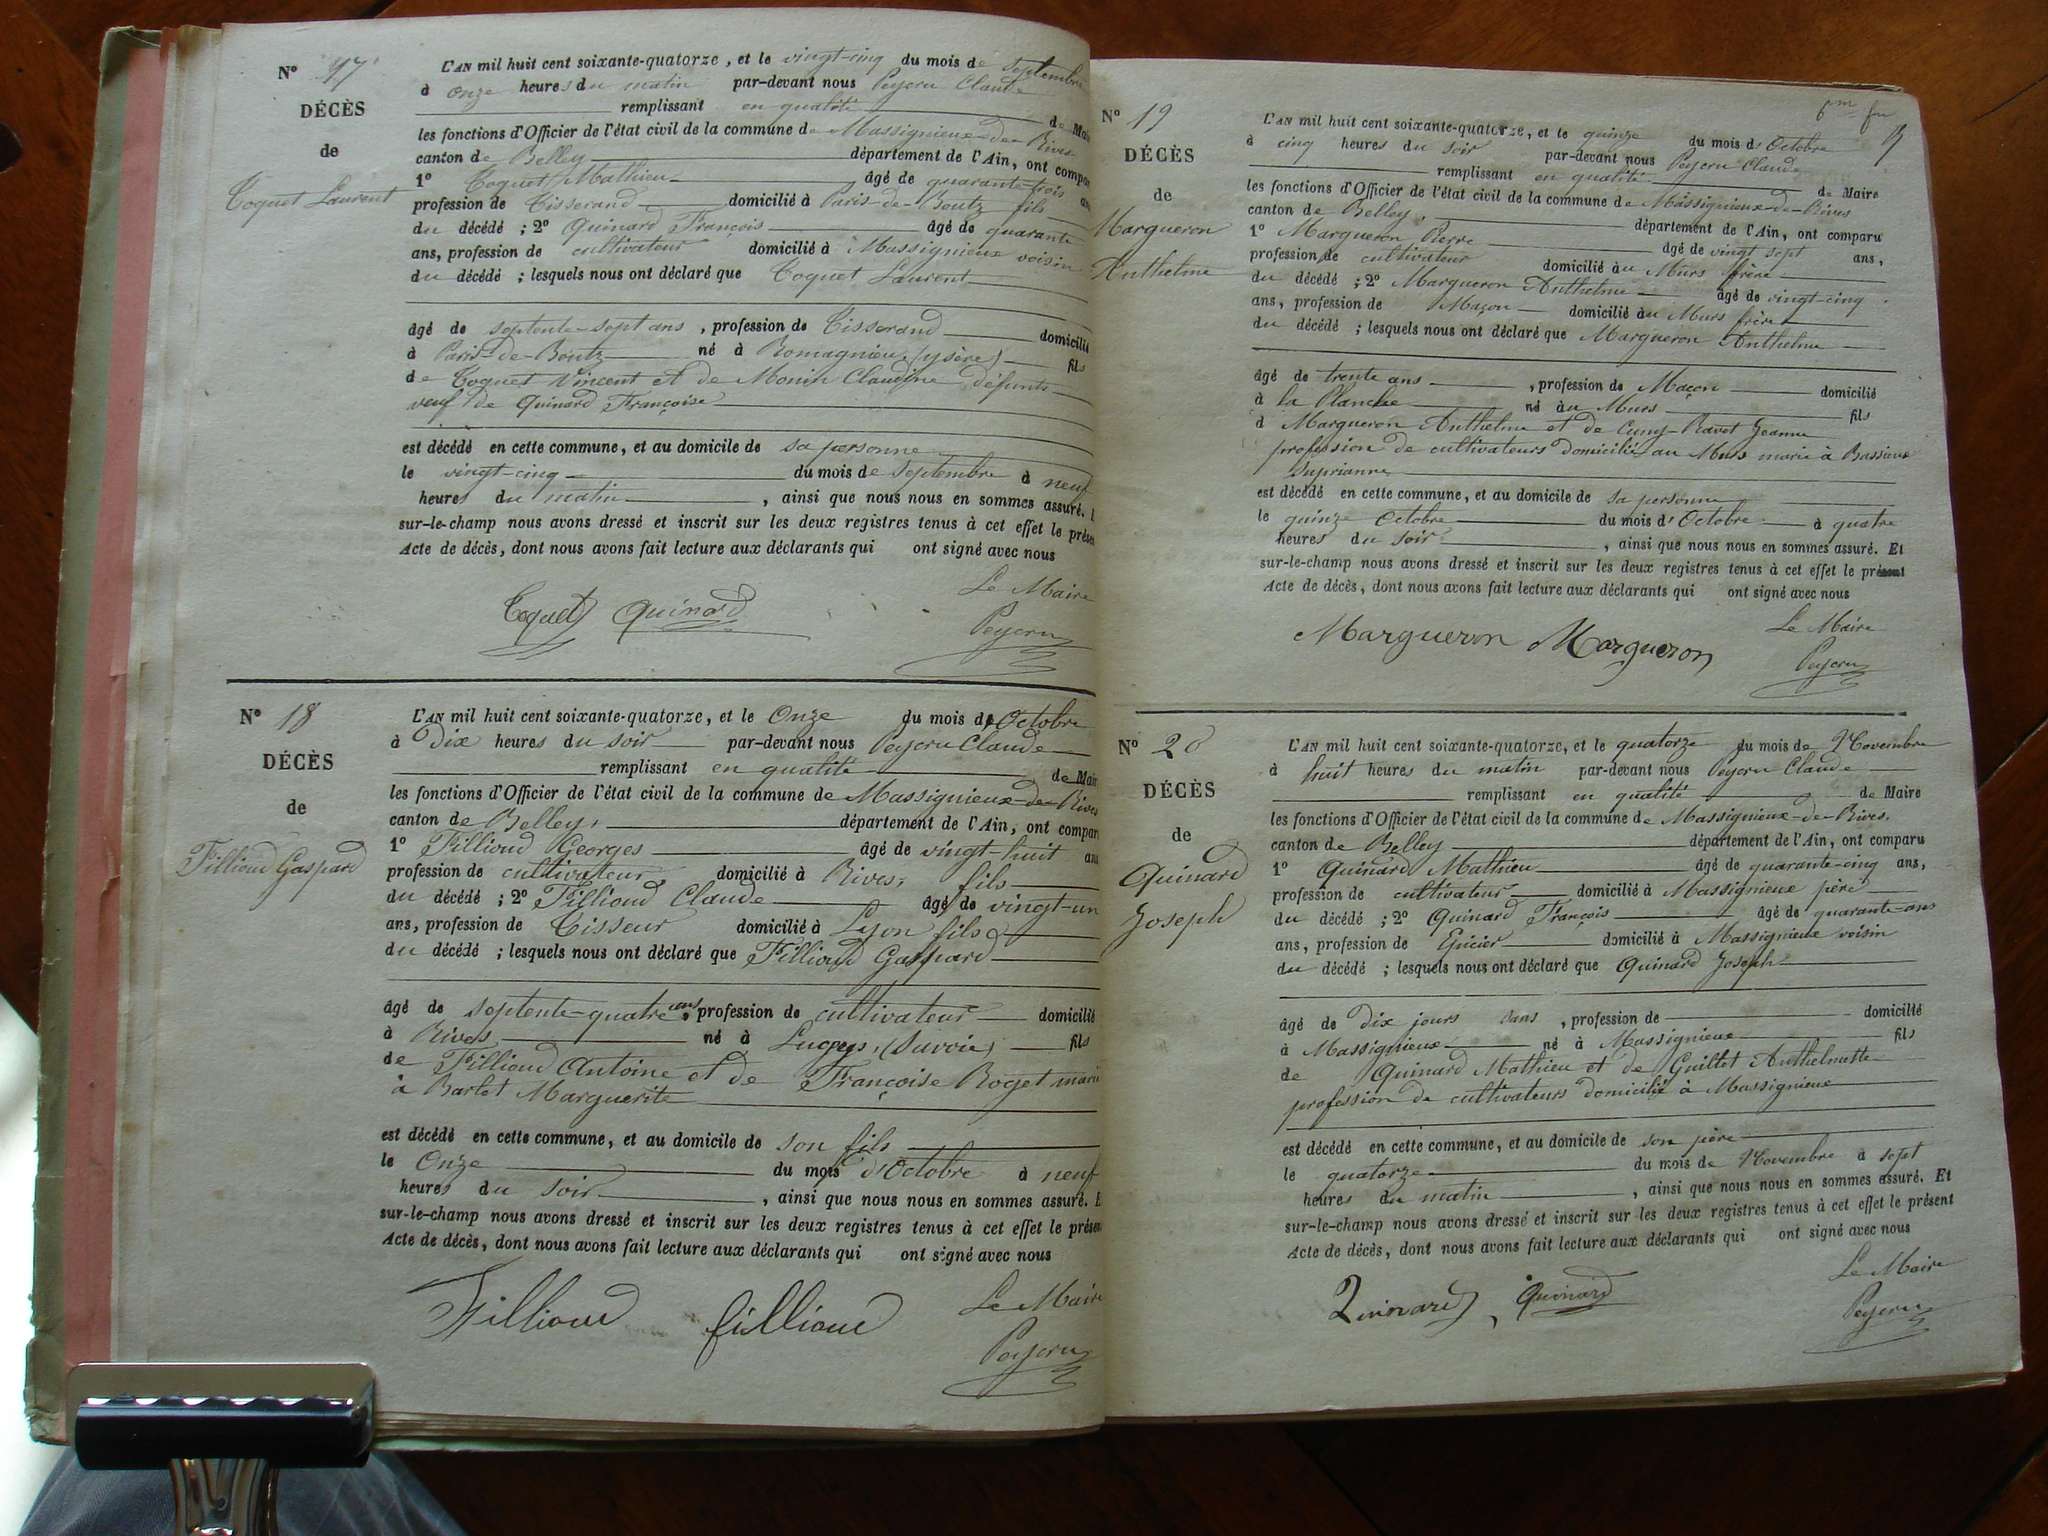 N° 17
DÉCÈS
de
Coquet Laurent
L'AN mil huit cent soixante-quatorze, et le vingt-cinq du mois de Septembre
à onze heures du matin par-devant nous Peycru Claude
remplissant en qualité de Mair
les fonctions d'Officier de l'état civil de la commune de Massignieux-de-Rives
canton de Belley département de l'Ain, ont compar
1° Coquet Mathieu âgé de quarante-trois ans
profession de Tisserand domicilié à Paris-de-Boutz fils
du décédé ; 2° Quinard François âgé de quarante
ans, profession de cultivateur domicilié à Massignieux voisin
du décédé ; lesquels nous ont déclaré que Coquet Laurent
âgé de septente-sept ans , profession de Tisserand domicilié
à Paris-de-Boutz né à Romagnieux (ysère) fils
de Coquet Vincent et de Monin Claudine défunts
veuf de Quinard Françoise
est décédé en cette commune, et au domicile de sa personne
le vingt-cinq du mois de Septembre à neuf
heures du matin , ainsi que nous nous en sommes assuré. E
sur-le-champ nous avons dressé et inscrit sur les deux registres tenus à cet effet le présen
Acte de décès, dont nous avons fait lecture aux déclarants qui ont signé avec nous
Le Maire
Coquet Quinard Peycru
N° 18
DÉCÈS
de
Fillioud Gaspard
L'AN mil huit cent soixante-quatorze, et le Onze du mois d'Octobre
à Dix heures du soir par-devant nous Peycru Claude
remplissant en qualité de Mair
les fonctions d'Officier de l'état civil de la commune de Massignieux-de-Rives
canton de Belley, département de l'Ain, ont compar
1° Fillioud Georges âgé de vingt-huit ans
profession de cultivateur domicilié à Rives, fils
du décédé ; 2° Fillioud Claude âgé de vingt-un
ans, profession de Tisseur domicilié à Lyon fils
du décédé ; lesquels nous ont déclaré que Fillioud Gaspard
âgé de septente-quatre ans, profession de cultivateur domicilié
à Rives né à Lucey, (Savoie) fils
de Fillioud Antoine et de Françoise Roget marié
à Barlet Marguerite
est décédé en cette commune, et au domicile de son fils
le Onze du mois d'Octobre à neuf
heures du soir , ainsi que nous nous en sommes assuré. E
sur-le-champ nous avons dressé et inscrit sur les deux registres tenus à cet effet le présen
Acte de décès, dont nous avons fait lecture aux déclarants qui ont signé avec nous
Le Maire
Fillioud fillioud Peycru
N° 19
DÉCÈS
de
Margueron
Anthelme
L'AN mil huit cent soixante-quatorze, et le quinze du mois d'Octobre
à cinq heures du soir par-devant nous Peycru Claude
remplissant en qualité de Maire
les fonctions d'Officier de l'état civil de la commune de Massignieux-de-Rives
canton de Belley, département de l'Ain, ont comparu
1° Margueron Pierre âgé de vingt sept ans,
profession de cultivateur domicilié au Murs frère
du décédé ; 2° Margueron Anthelme âgé de vingt-cinq
ans, profession de Maçon domicilié au Murs frère
du décédé ; lesquels nous ont déclaré que Margueron Anthelme
âgé de trente ans , profession de Maçon domicilié
à la Planche né au Murs fils
d Margueron Anthelme et de Cuny-Ravet Jeanne
profession de cultivateurs domicilié au Murs marié à Bassieux
Suprianne
est décédé en cette commune, et au domicile de sa personne
le quinze Octobre du mois d'Octobre à quatre
heures du soir , ainsi que nous nous en sommes assuré. Et
sur-le-champ nous avons dressé et inscrit sur les deux registres tenus à cet effet le présent
Acte de décès, dont nous avons fait lecture aux déclarants qui ont signé avec nous
Le Maire
Margueron Margueron Peycru
N° 20
DÉCÈS
de
Quinard
Joseph
L'AN mil huit cent soixante-quatorze, et le quatorze du mois de Novembre
à huit heures du matin par-devant nous Peycru Claude
remplissant en qualité de Maire
les fonctions d'Officier de l'état civil de la commune de Massignieux-de-Rives.
canton de Belley département de l'Ain, ont comparu
1° Quinard Mathieu âgé de quarante-cinq ans,
profession de cultivateur domicilié à Massignieux père
du décédé ; 2° Quinard François âgé de quarante-ans
ans, profession de Epicier domicilié à Massignieux voisin
du décédé ; lesquels nous ont déclaré que Quinard Joseph
âgé de Dix jours sans , profession de domicilié
à Massignieux né à Massignieux fils
de Quinard Mathieu et de Guillet Anthelmette
profession de cultivateurs domicilié à Massignieux
est décédé en cette commune, et au domicile de son père
le quatorze du mois de Novembre à sept
heures du matin , ainsi que nous nous en sommes assuré. Et
sur-le-champ nous avons dressé et inscrit sur les deux registres tenus à cet effet le présent
Acte de décès, dont nous avons fait lecture aux déclarants qui ont signé avec nous
Le Maire
Quinard, Quinard Peycru